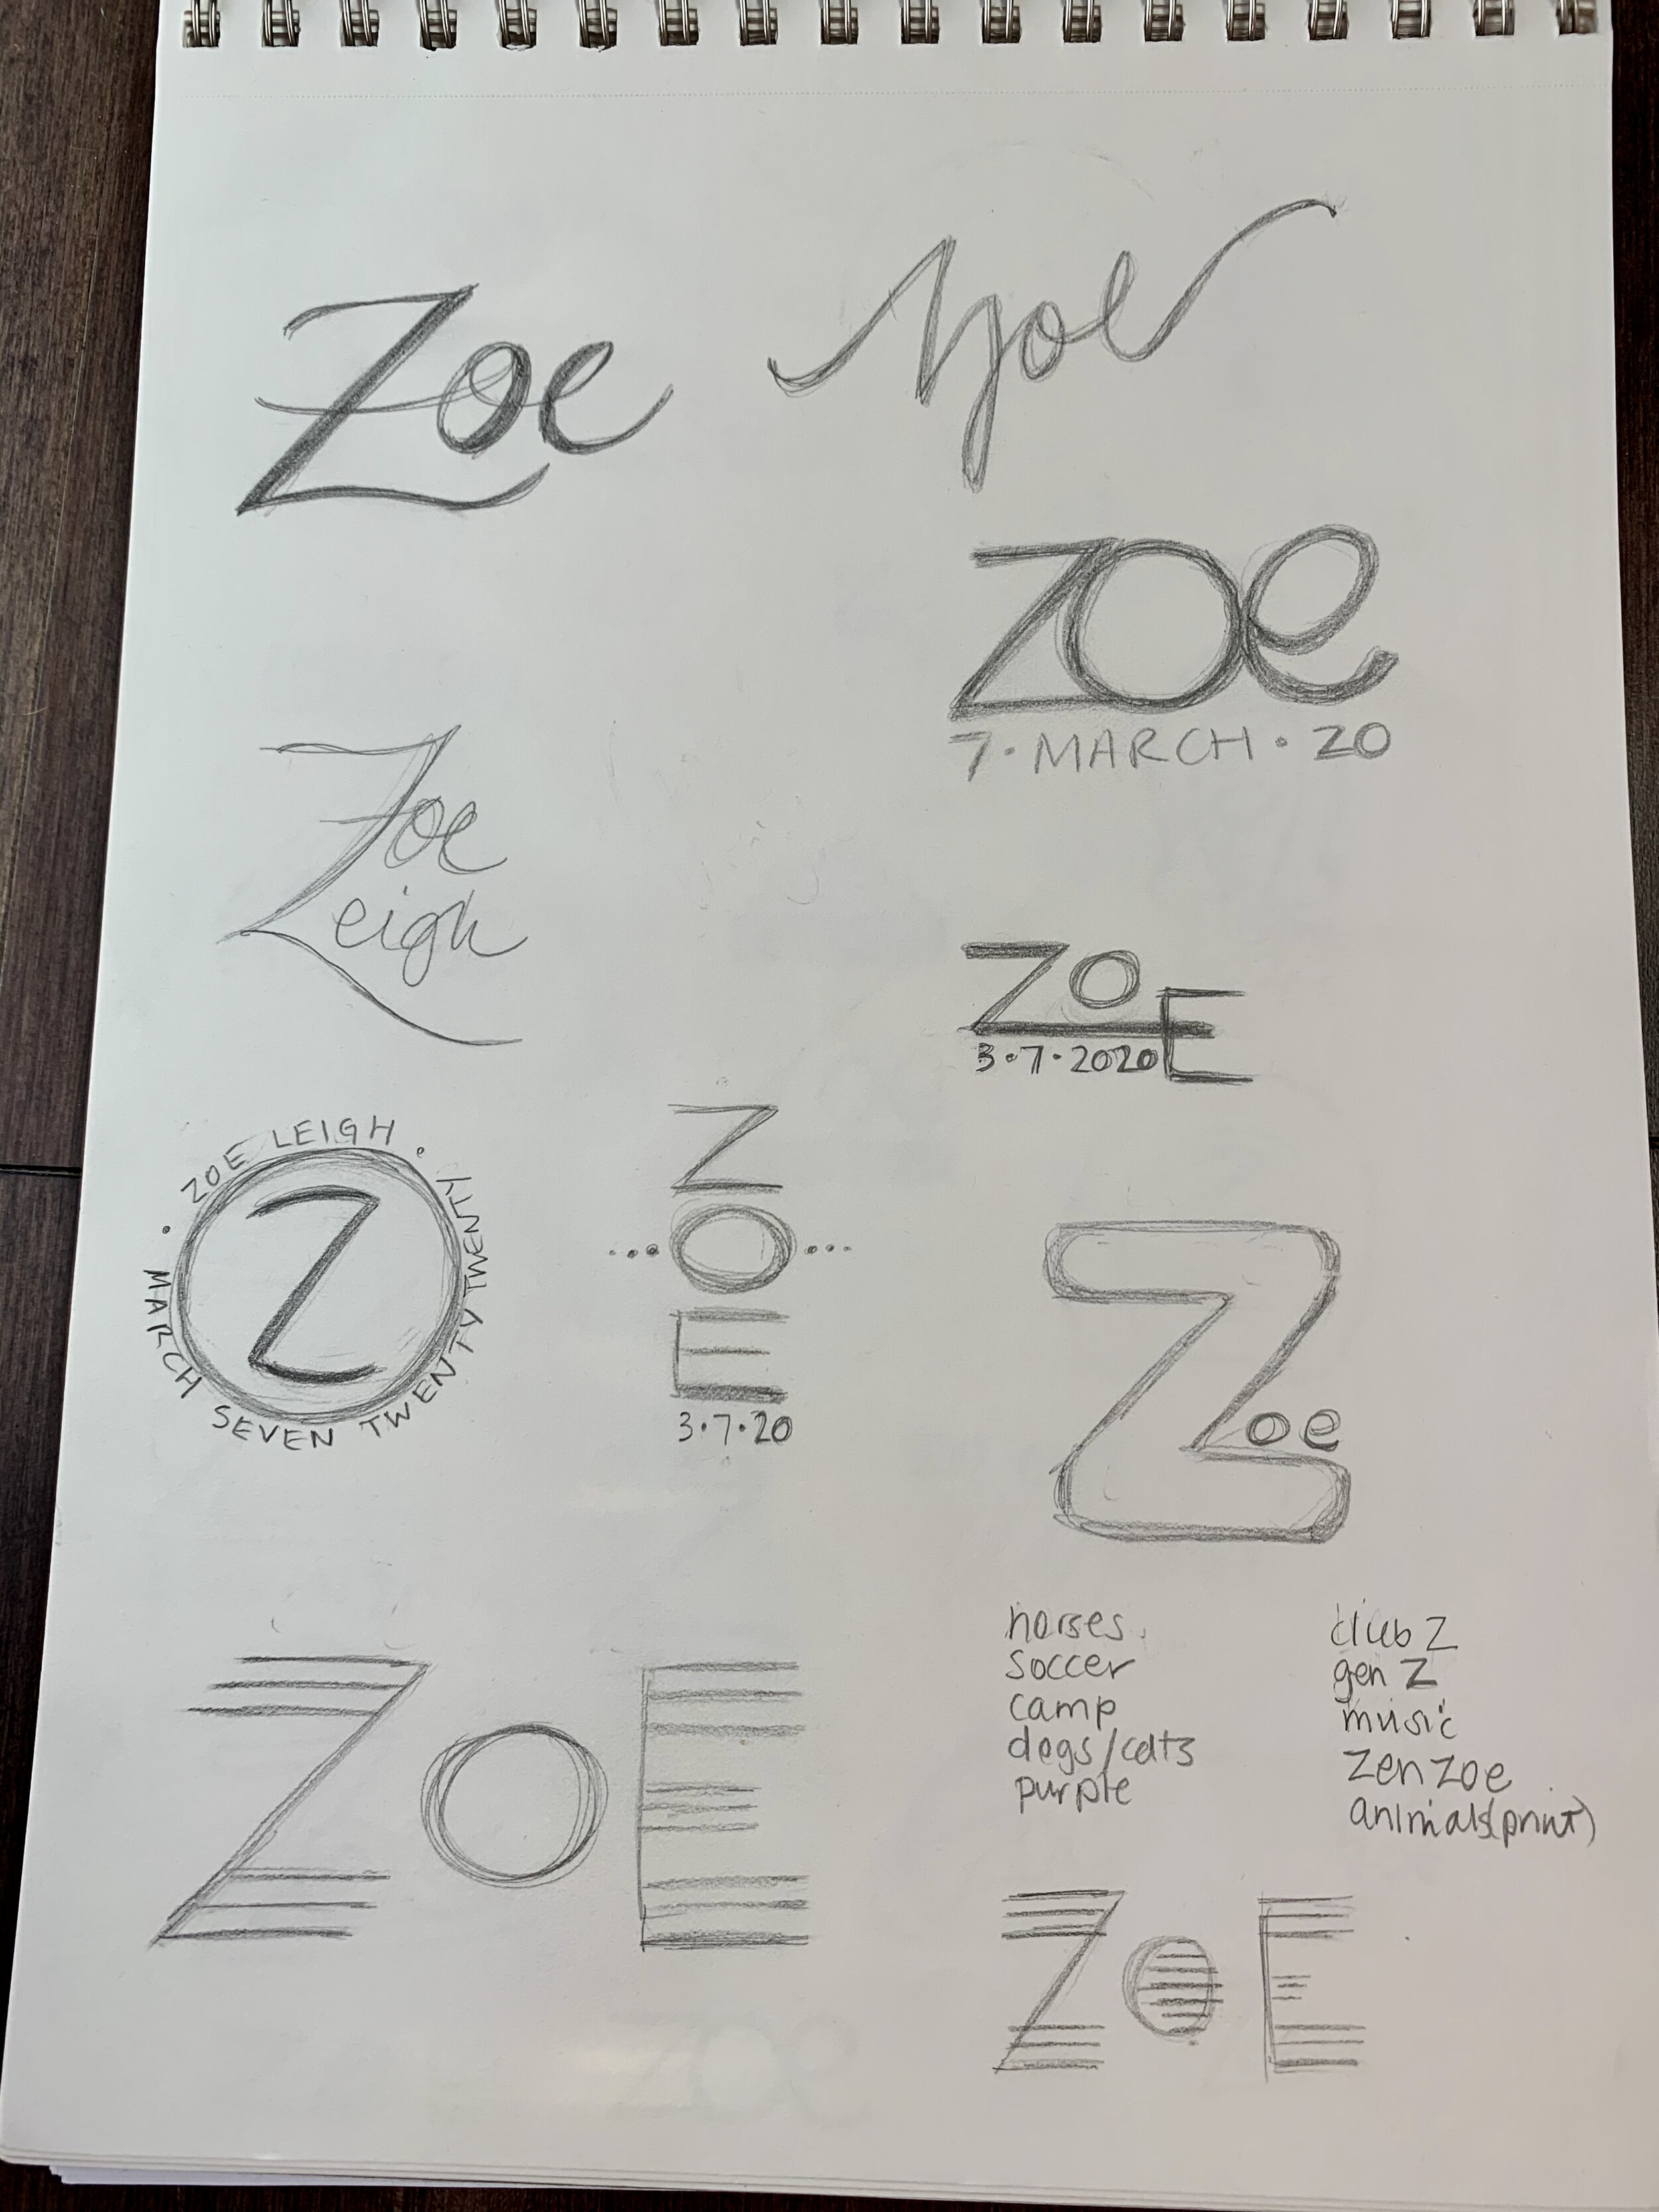 Zoe
Zoe
zoe
7·MARCH·20
Zoe
Leigh
ZOE
3·7·2020
ZOE LEIGH · MARCH SEVEN TWENTY TWENTY ·
Z
Z
O
E
3·7·20
Zoe
horses
soccer
camp
dogs/cats
purple
club Z
gen Z
music
zen zoe
animals(print)
ZOE
ZOE